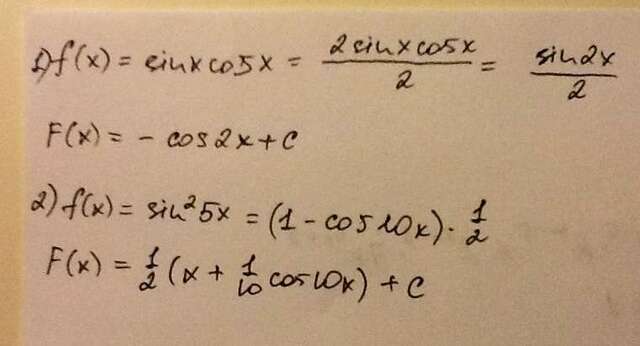 1) f(x) = sinx cosx = 2sinx cosx / 2 = sin2x / 2
F(x) = - cos2x + C
2) f(x) = sin²5x = (1 - cos10x) · 1/2
F(x) = 1/2 (x + 1/10 cos10x) + C